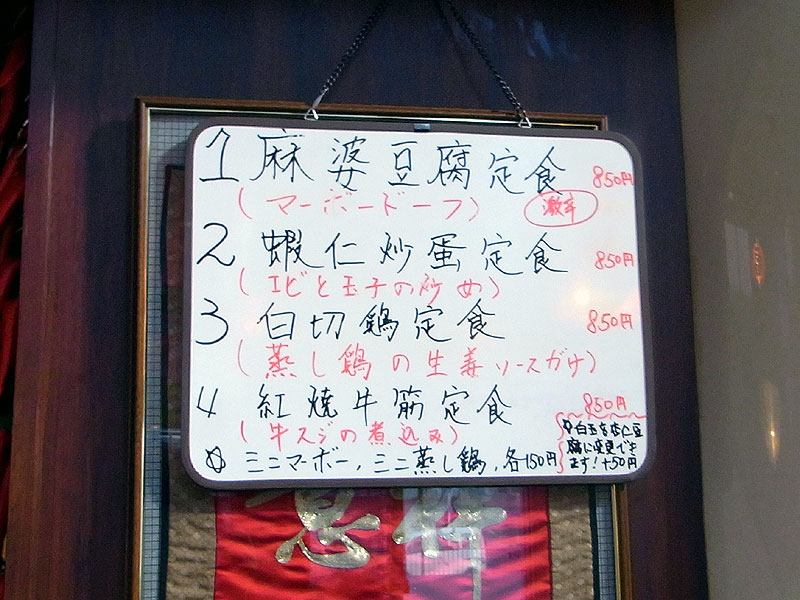 1 麻婆豆腐定食 850円
(マーボードーフ) 激辛
2 蝦仁炒蛋定食 850円
(エビと玉子の炒め)
3 白切鶏定食 850円
(蒸し鶏の生姜ソースがけ)
4 紅焼牛筋定食 850円
(牛スジの煮込み)
☆ ミニマーボー,ミニ蒸し鶏,各150円
☆白玉杏仁豆
腐に変更でき
ます!+50円